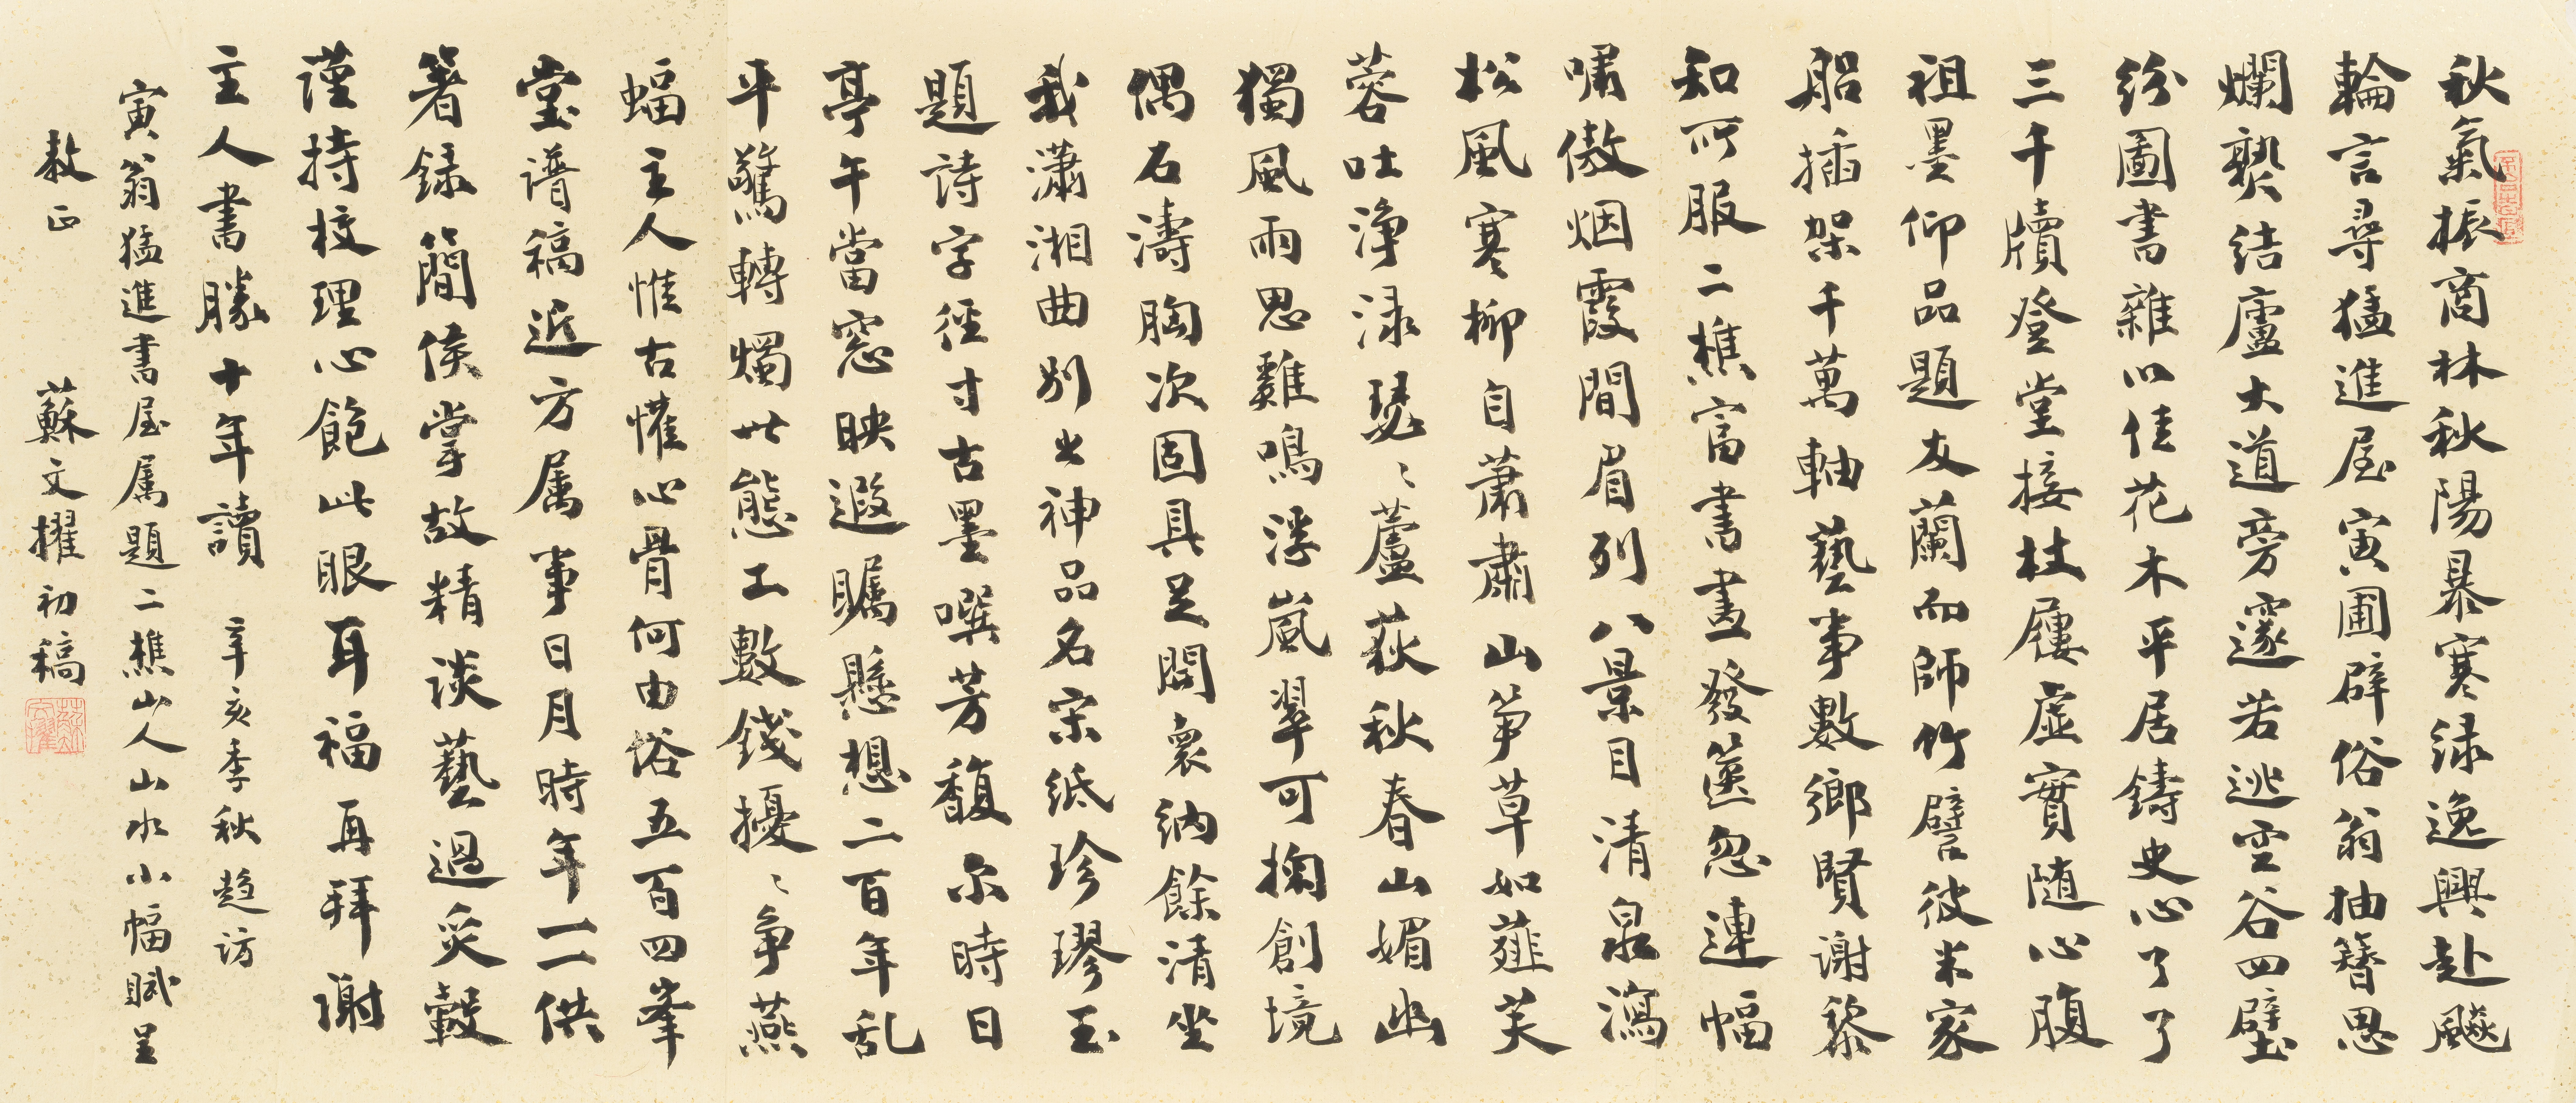 秋氣振商林秋陽暴寒緑逸興赴飈
輪言尋猛進屋寅圃辟俗翁抽簪思
爛褻结廬大道旁邃若逃空谷四壁
紛圖書雜以佳花木平居鑄史心了了
三千牘登堂接杖屨虛實随心腹
祖墨仰品題友蘭而師竹譬彼米家
船插架千萬軸藝事數鄉賢謝黎
知所服二樵富書畫發篋忽連幅
嘯傲烟霞間眉列八景目清泉瀉
松風寒柳自蕭肅山笋草如薤芙
蓉吐浄渌瑟〻蘆荻秋春山媚幽
獨風雨思雞鳴浮嵐翠可掬創境
偶石濤胸次固具足閎襄納餘清坐
我瀟湘曲别出神品名宋紙珍璆玉
題詩字徑寸古墨噀芳馥尔時日
亭午當窓映遐矚懸想二百年乱
平驚轉燭世態工數錢擾〻争燕
蝠主人惟古懽心骨何由俗五百四峯
堂譜稿近方属事日月時年一一供
箸録簡侯掌故精談藝過炙轂
謹持校理心飽此眼耳福再拜謝
主人書勝十年讀 辛亥季秋趋訪
寅翁猛進書屋属題二樵山人山水小幅賦呈
教正 蘇文擢初稿
蘇文擢